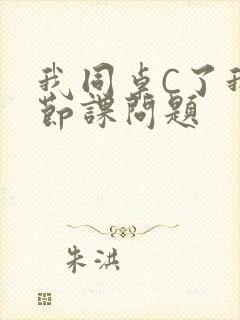 我同桌C了我
節課問題
朱洪